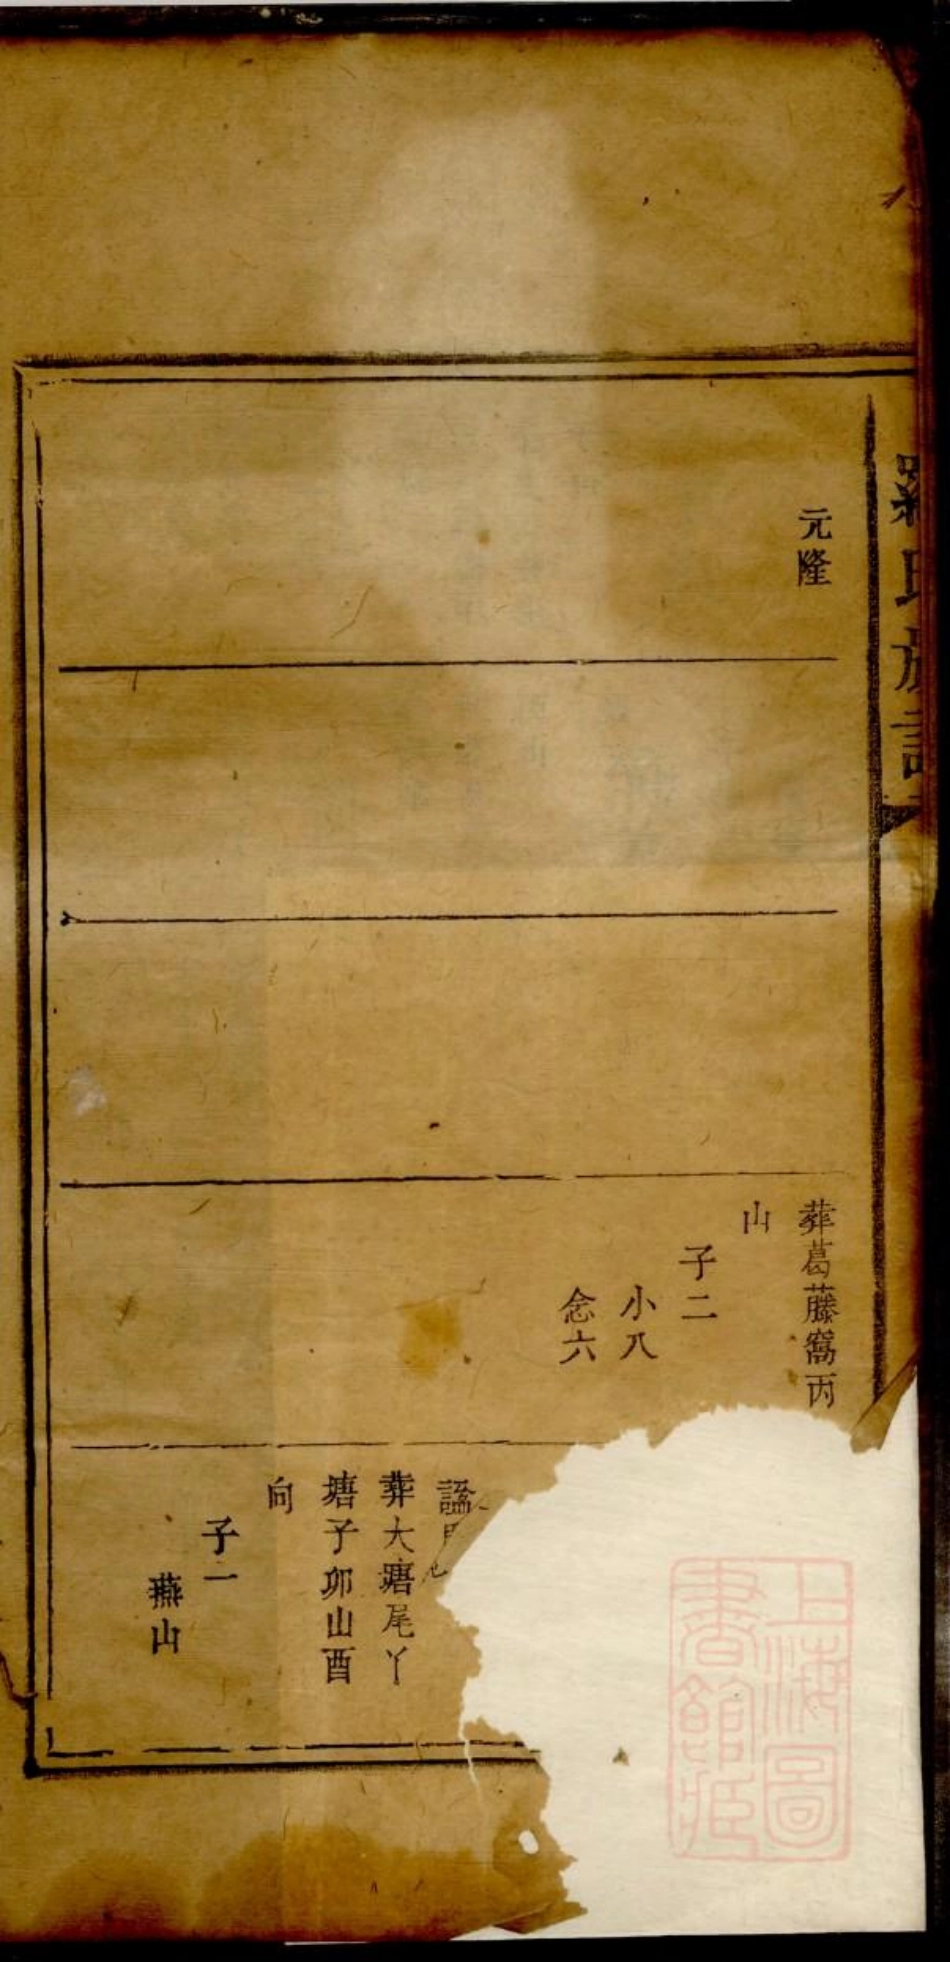 羅氏族譜
元隆
葬葛藤窩丙
山
子二
小八
念六
葬大塘尾丫
塘子卯山酉
向
子一
燕山
上海圖
書館藏